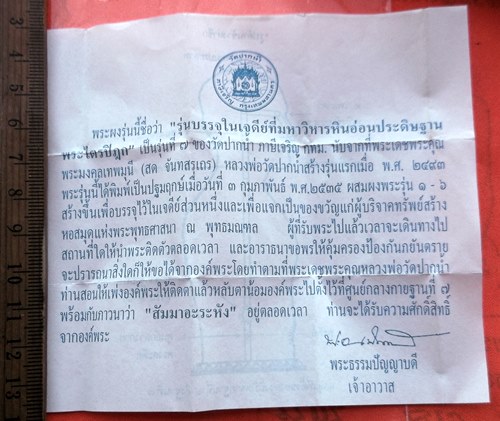 วัดปากน้ำ
ภาษีเจริญ กรุงเทพมหานคร
พระผงรุ่นนี้ชื่อว่า "รุ่นบรรจุในเจดีย์ที่มหาวิหารหินอ่อนประดิษฐาน
พระไตรปิฎก" เป็นรุ่นที่ ๗ ของวัดปากน้ำ ภาษีเจริญ กทม. นับจากที่พระเดชพระคุณ
พระมงคลเทพมุนี (สด จันทสระเถร) หลวงพ่อวัดปากน้ำสร้างรุ่นแรกเมื่อ พ.ศ. ๒๔๙๓
พระรุ่นนี้ได้พิมพ์เป็นปฐมฤกษ์เมื่อวันที่ ๓ กุมภาพันธ์ พ.ศ.๒๕๓๕ ผสมผงพระรุ่น ๑ - ๖
สร้างขึ้นเพื่อบรรจุไว้ในเจดีย์ส่วนหนึ่งและเพื่อแจกเป็นของขวัญแก่ผู้บริจาคทรัพย์สร้าง
หอสมุดแห่งพระพุทธศาสนา ณ พุทธมณฑล ผู้ที่รับพระไปแล้วเวลาจะเดินทางไป
สถานที่ใดให้นำพระติดตัวตลอดเวลา และอาราธนาขอพรให้คุ้มครองป้องกันภัยอันตราย
จะปรารถนาสิ่งใดก็ให้ขอได้จากองค์พระโดยทำตามที่พระเดชพระคุณหลวงพ่อวัดปากน้ำ
ท่านสอนให้เพ่งองค์พระให้ติดตาแล้วหลับตาน้อมองค์พระไปตั้งไว้ที่ศูนย์กลางกายฐานที่ ๗
พร้อมกับภาวนาว่า "สัมมาอะระหัง" อยู่ตลอดเวลา ท่านจะได้รับความศักดิ์สิทธิ์
จากองค์พระ
พระธรรมปัญญาบดี
เจ้าอาวาส
3
4
5
6
7
8
9
10
11
12
13